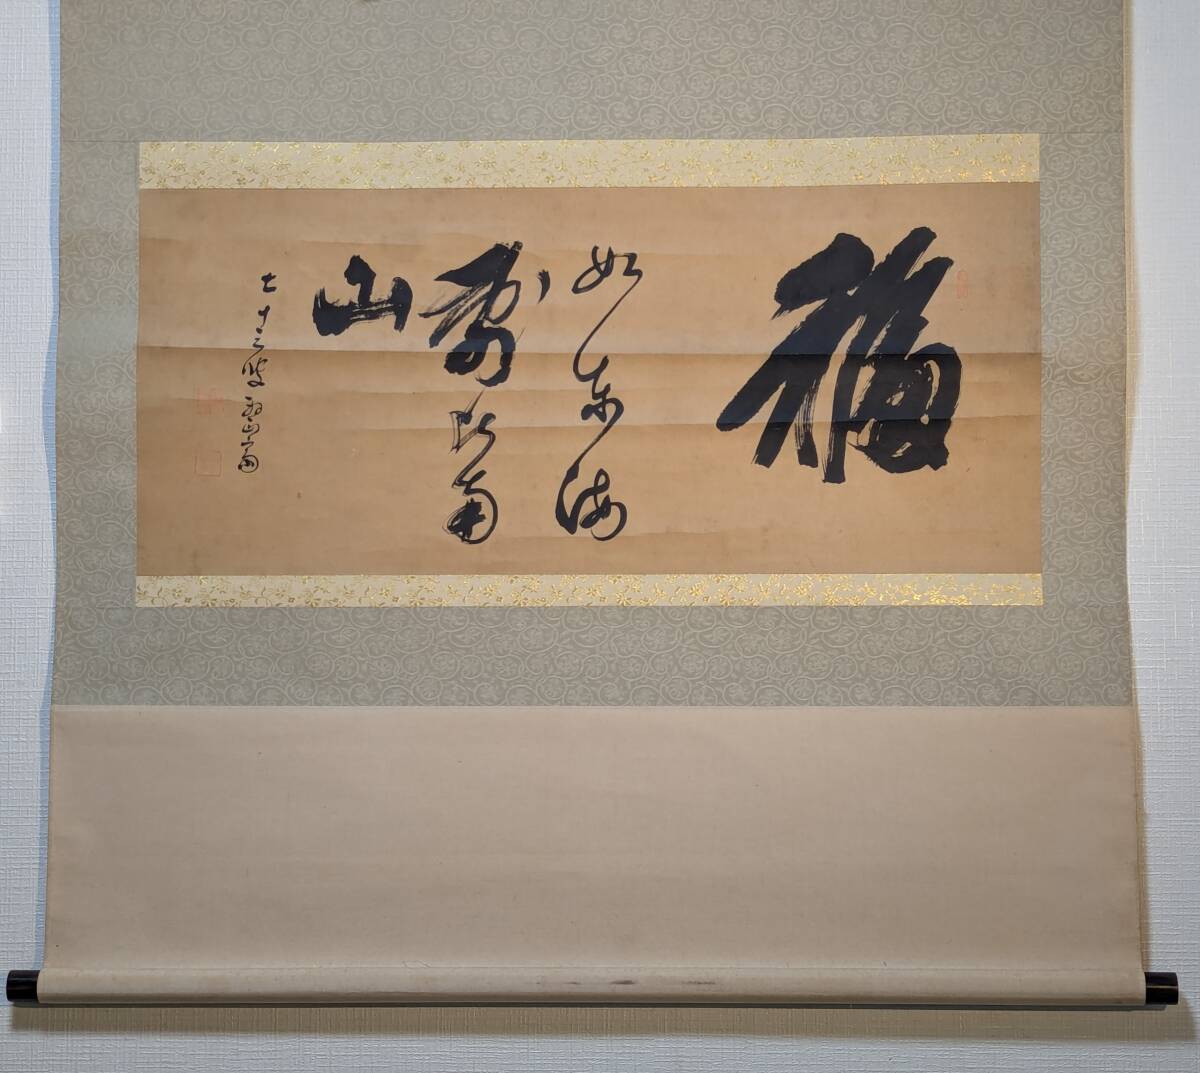 福
如東海
壽比南
山
七十三叟